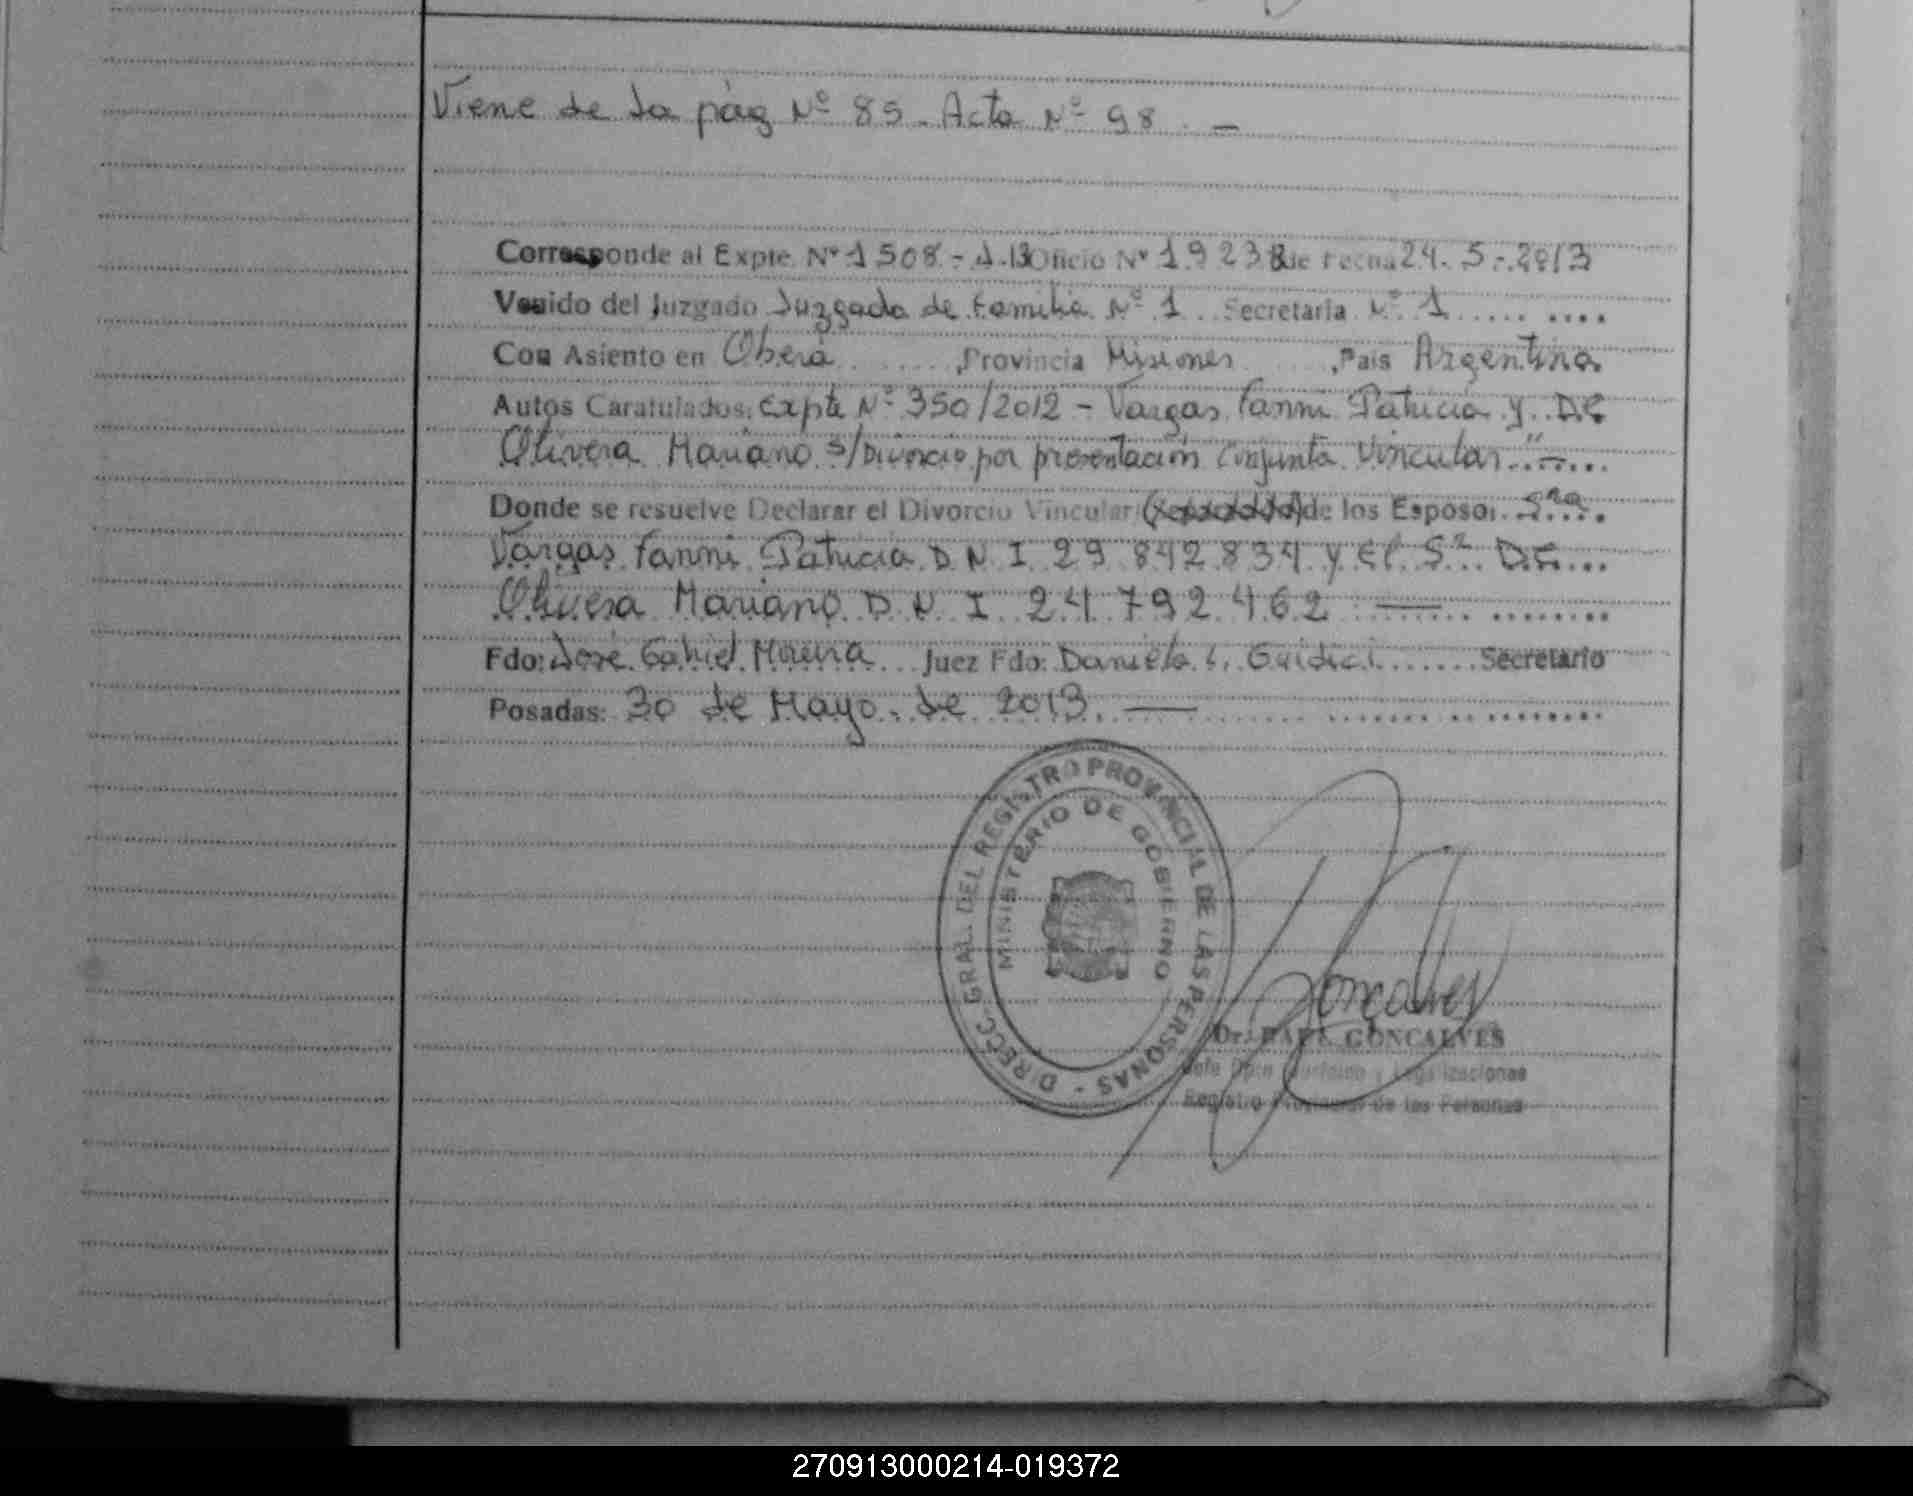 Viene de la pág Nº 85. Acta Nº 98. —
Corresponde al Expte. Nº 1508 - J-13 Oficio Nº 19238 de Fecha 24. 5 - 2013
Venido del Juzgado Juzgado de Familia Nº 1 Secretaría Nº 1
Con Asiento en Oberá, Provincia Misiones, País Argentina
Autos Caratulados: Expte Nº 350/2012 - Vargas Fanni Patricia y DE
Olivera Mariano s/Divorcio por presentación conjunta Vincular"
Donde se resuelve Declarar el Divorcio Vincular de los Esposos Sra
Vargas Fanni Patricia D N I 29 842 834 y el Sr DE
Olivera Mariano D. N. I 24 792 462 —
Fdo: José Gabriel Moreira Juez Fdo: Daniela Guidici Secretario
Posadas: 30 de Mayo de 2013 —
DIREC. GRAL. DEL REGISTRO PROVINCIAL DE LAS PERSONAS -
MINISTERIO DE GOBIERNO
Goncalves
Dr. RAUL GONCALVES
Jefe Dpto y Legalizaciones
Registro Provincial de las Personas
270913000214-019372